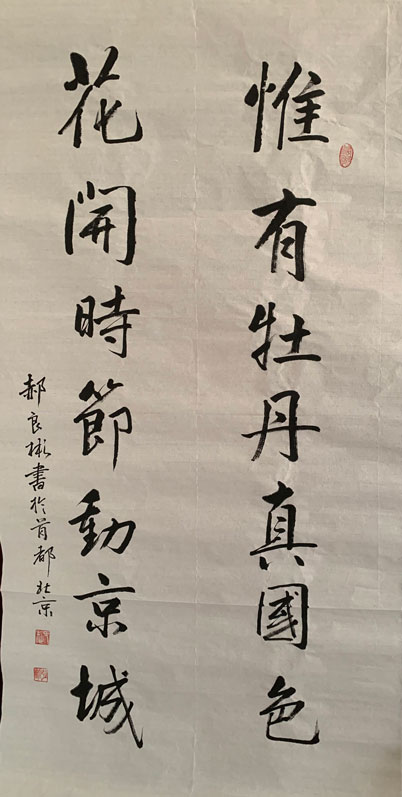 惟有牡丹真國色
花開時節動京城
郝良彬書於首都北京